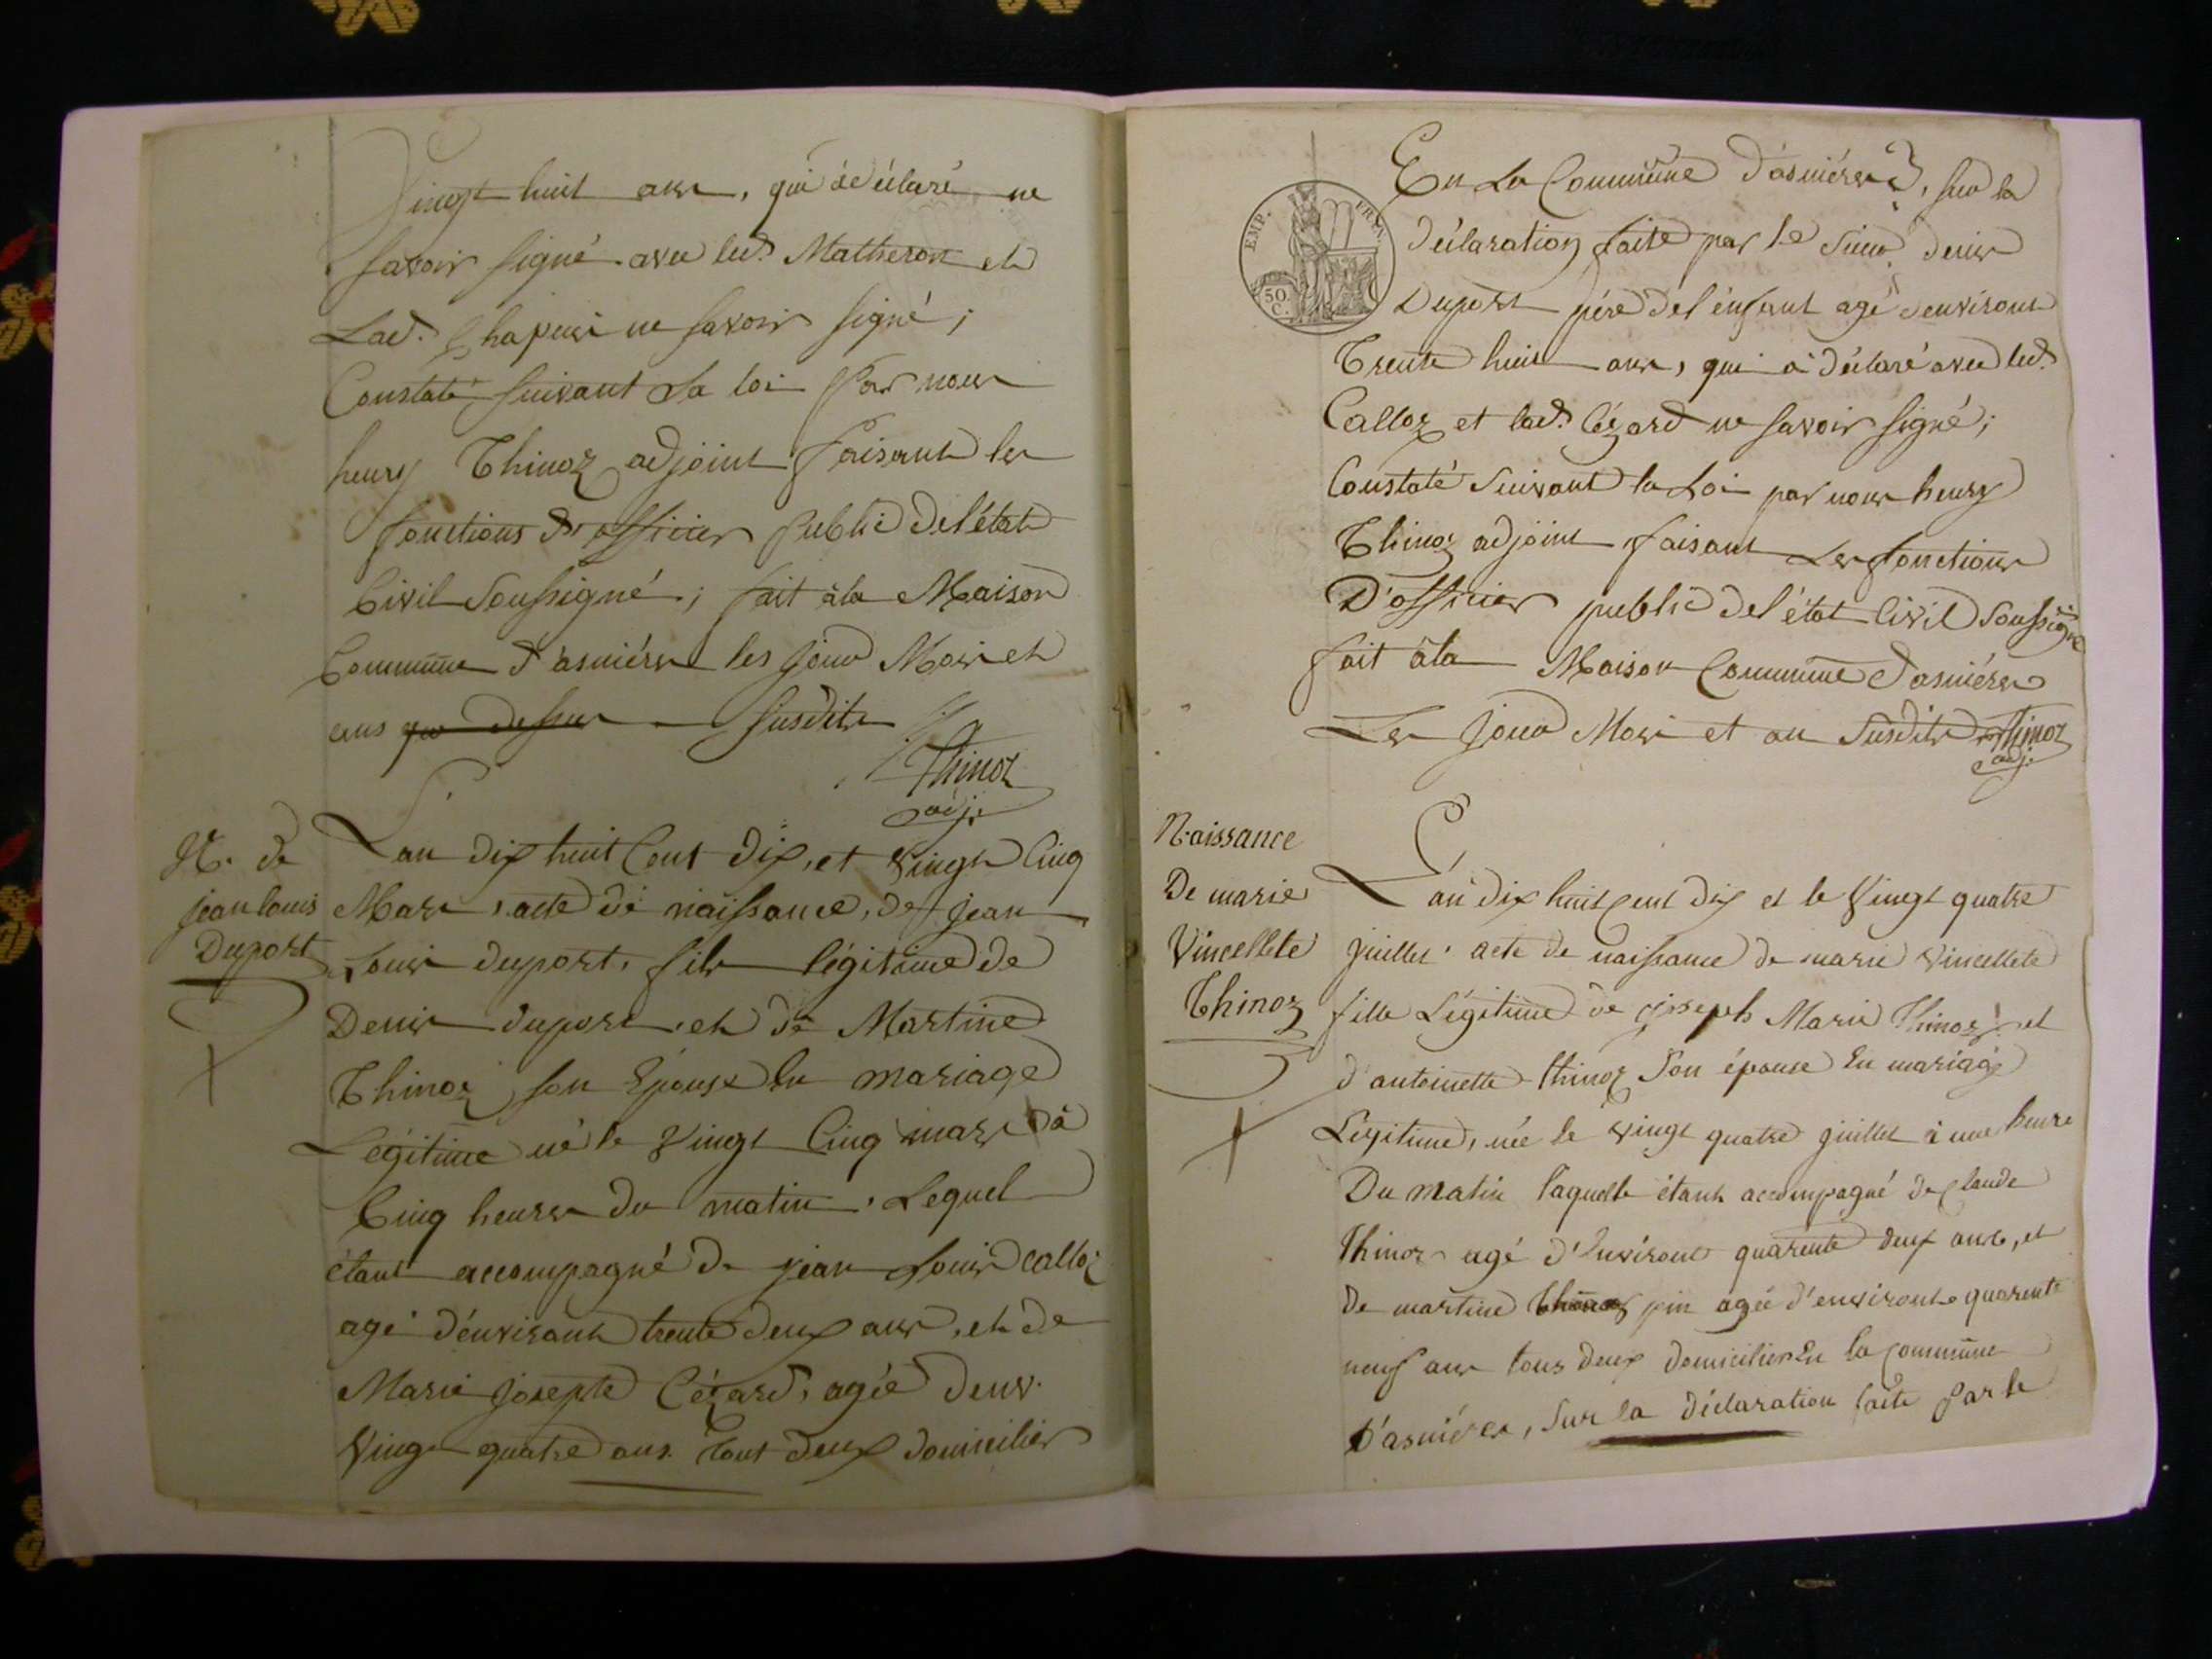 Vingt huit ans, qui a déclaré ne
savoir signé avec led. Matheron et
Lad. Chapuis ne savoir signé;
Constaté suivant La loi Par nous
henry Thinoz adjoint faisant les
fonctions d'officier Public de l'état
Civil Soussigné; fait à la Maison
Commune d'asniéres les jour Mois et
ans que dessus susdits
Thinoz
adj.
N. de
jean louis
Duport
L'an dix huit Cent dix, et Vingt Cinq
Mars, acte de naissance, de jean
Louis duport, fils légitime de
Denis duport, et de Martine
Thinoz son Epouse En mariage
Légitime né le Vingt Cinq mars à
Cinq heures du matin, Lequel
étant accompagné de jean Louis Calloz
agé d'environt trente deux ans, et de
Marie josepte Cézard, agée denv.
Vingt quatre ans. tout deux domicilier
EMP. FRAN.
50 C.
En La Commune d'asniéres, sur la
déclaration faite par le Sieur denis
Duport pére de l'énfant agé denviront
Trente huit ans, qui a déclaré avec led.
Calloz et lad. Cézard ne savoir signé;
Constaté suivant la Loi par nous henry
Thinoz adjoint faisant Les fonctions
D'officier public de l'état Civil soussigné
fait à la Maison Commune d'asniéres
Les jour Mois et an Susdits Thinoz
adj.
Naissance
De marie
Vincellete
Thinoz
L'an dix huit cent dix et le Vingt quatre
juillet acte de naissance de marie Vincellete
fille Légitime de joseph Marie Thinoz et
d'antoinette thinoz Son épouse En mariage
Légitime, née le vingt quatre juillet à une heure
Du matin laquelle étant accompagné de Claude
Thinoz agé d'Environt quarente deux ans, et
De martine pin agée d'environt quarente
neuf ans tous deux domicilier En la Commune
D'asniéres, Sur la déclaration faite Par le